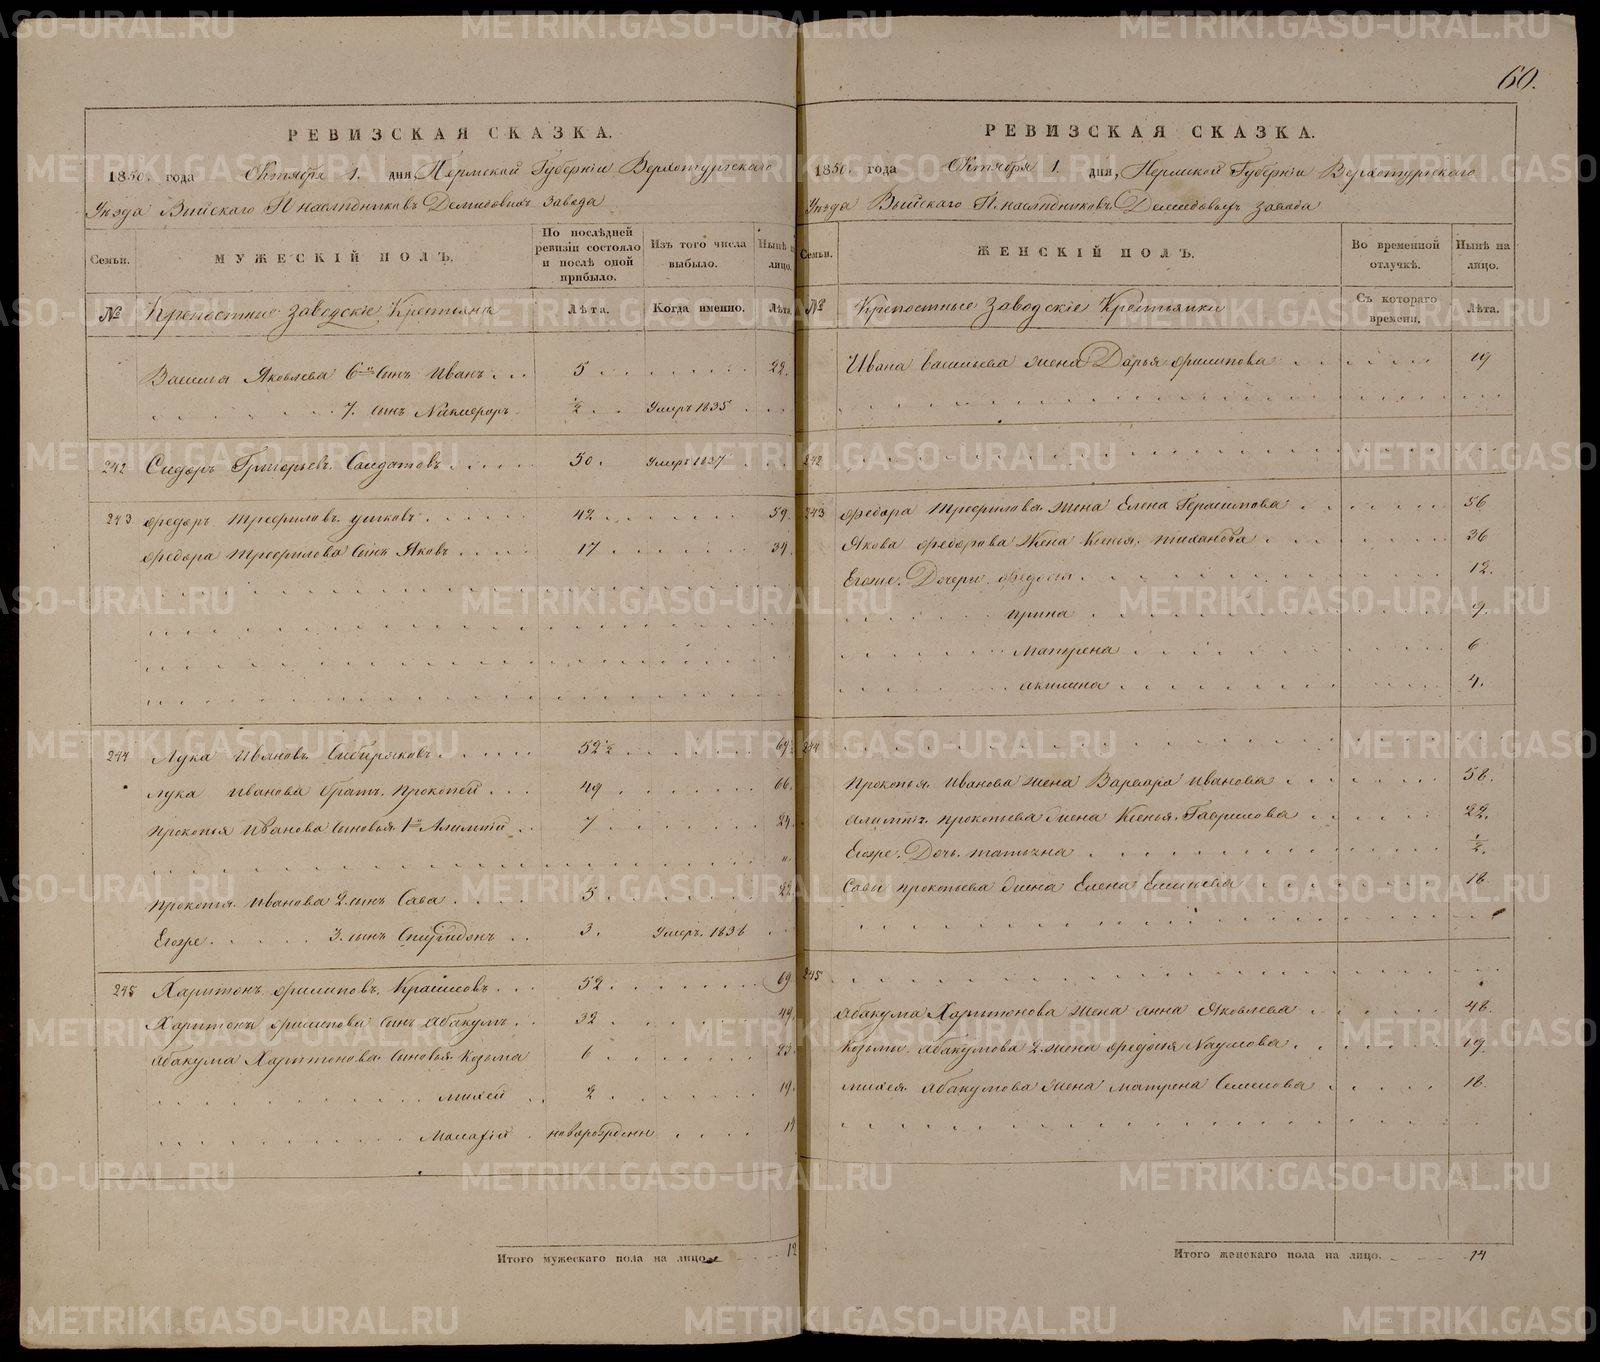 60.
РЕВИЗСКАЯ СКАЗКА.
1850. года Октября 1. дня, Пермской Губерніи Верхотурскаго
Уѣзда Выйскаго Г. наслѣдниковъ Демидовыхъ завода
Семьи. МУЖЕСКІЙ ПОЛЪ. По послѣдней ревизіи состояло и послѣ оной прибыло. Изъ того числа выбыло. Нынѣ на лицо.
№ Крѣпостные заводскіе Крестьяне Лѣта. Когда именно. Лѣта.
Василья Яковлева 6й сынъ Иванъ 5 22.
7. сынъ Никифоръ ½ Умеръ 1835
242 Сидоръ Григорьевъ Солдатовъ 50. Умеръ 1837
243 Федоръ Трефиловъ Ушковъ 42 59.
Федора Трефилова сынъ Яковъ 17 34.
244 Лука Ивановъ Сибиряковъ 52½ 69.
Лука Иванова братъ Прокопей 49 66.
Прокопья Иванова сыновья 1й Алимпій 7 24.
Прокопья Иванова 2 сынъ Сава 5 22
Егоже 3. сынъ Спиридонъ 3. Умеръ 1836
245 Харитонъ Филиповъ 52 69
Харитона Филипова сынъ Абакумъ 32 49.
Абакума Харитонова сыновья Козьма 6 23.
Михей 2 19.
новорожденъ
Итого мужескаго пола на лицо 12
РЕВИЗСКАЯ СКАЗКА.
1850. года Октября 1. дня, Пермской Губерніи Верхотурскаго
Уѣзда Выйскаго Г. наслѣдниковъ Демидовыхъ завода
Семьи. ЖЕНСКІЙ ПОЛЪ. Во временной отлучкѣ. Нынѣ на лицо.
№ Крѣпостные заводскіе Крестьянки Съ котораго времени. Лѣта.
Ивана Васильева жена Дарья Филипова 19
242
243 Федора Трефилова жена Елена Герасимова 56
Якова Федорова жена Ксенья Тиханова 36
Егоже Дочери Федосья 12.
Ирина 9.
Матрена 6
Акилина 4.
244
Прокопья Иванова жена Варвара Иванова 58.
Алимпія Прокопьева жена Ксенья Гаврилова 22.
Егоже Дочь Татьяна ½.
Савы Прокопьева жена Елена 18
245
Абакума Харитонова жена Анна Яковлева 48.
Козьмы Абакумова 2 жена Федосья Наумова 19.
Михея Абакумова жена Матрена Семенова 18.
Итого женскаго пола на лицо. 14
METRIKI.GASO-URAL.RU